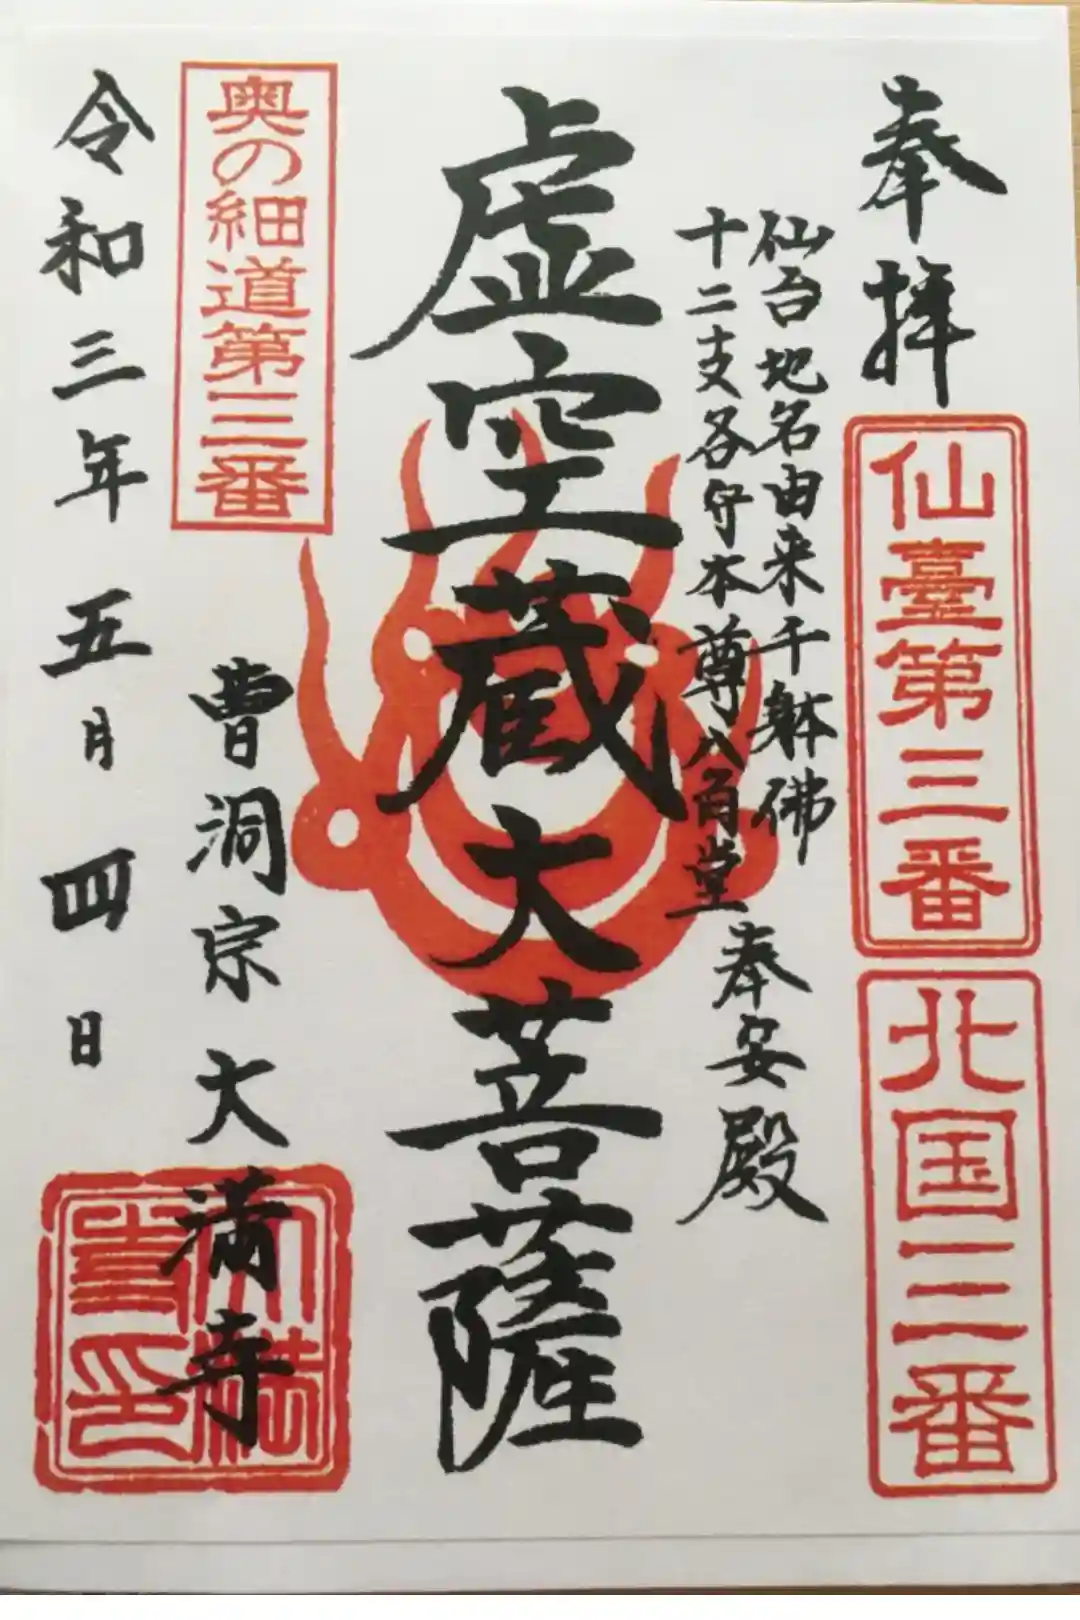 奉拝
仙臺第三番
北国三番
仙台地名由来千躰佛
十二支各守本尊八角堂
奉安殿
虚空蔵大菩薩
奥の細道第三番
曹洞宗大満寺
令和三年五月四日